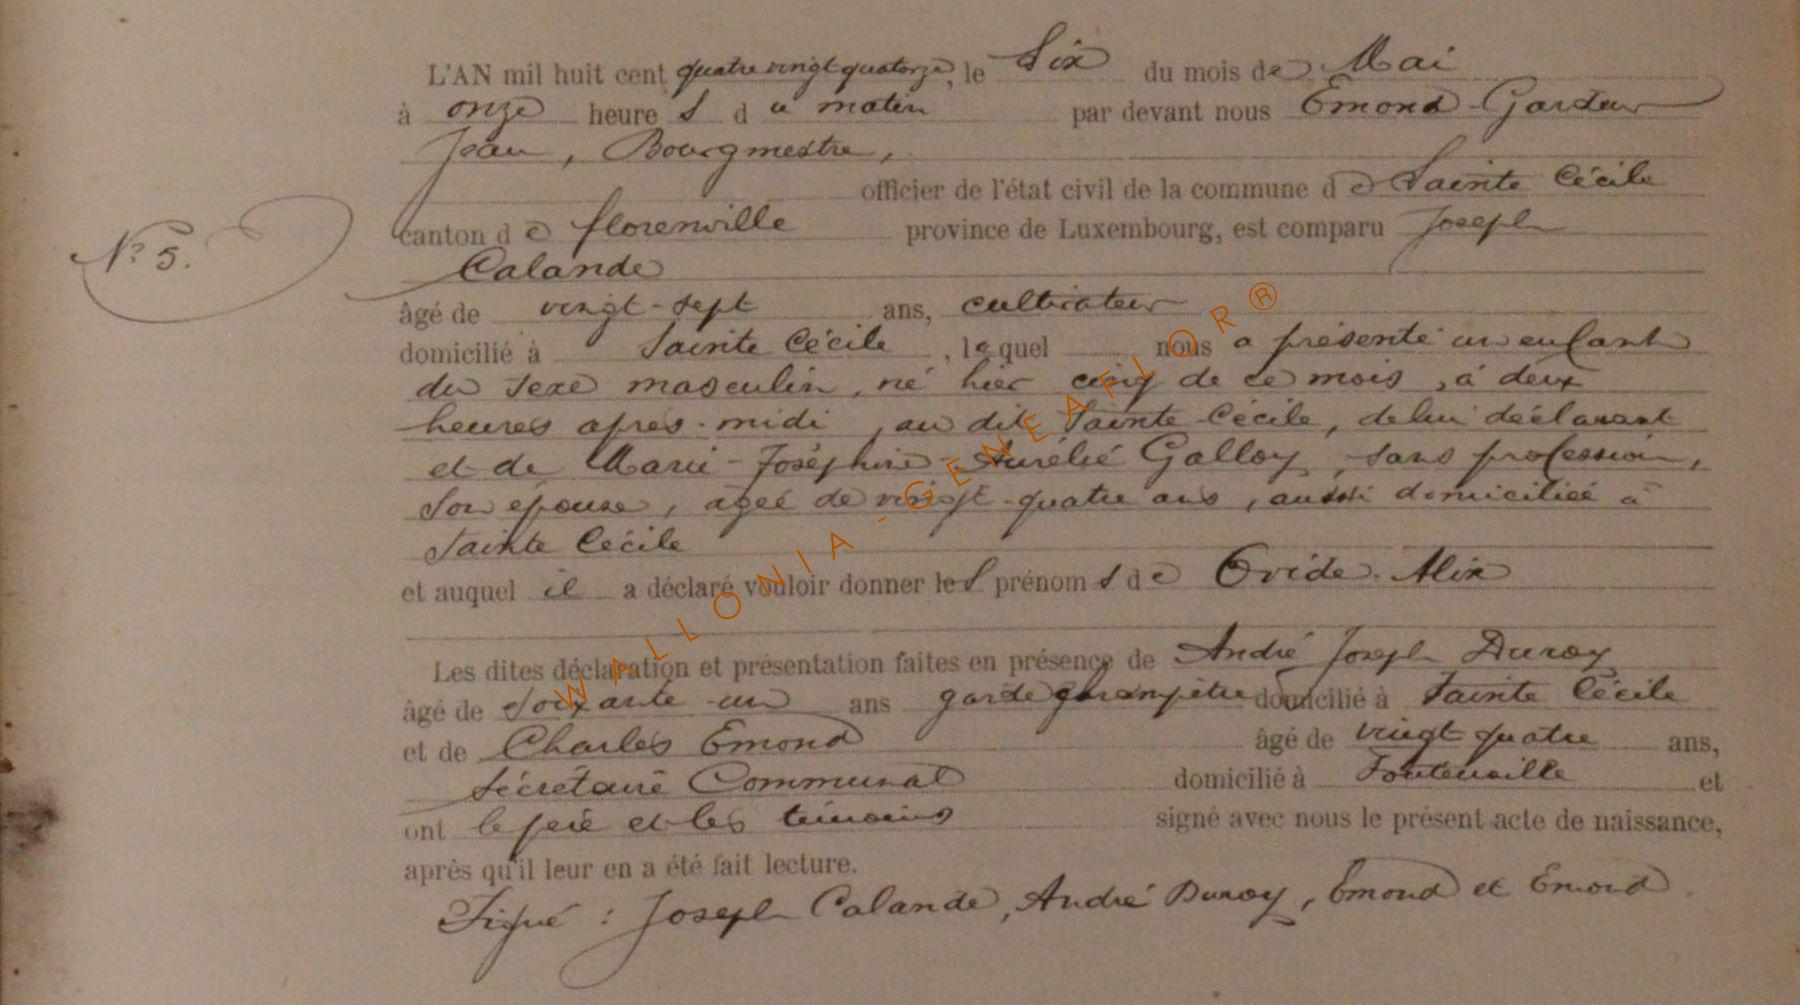 L'AN mil huit cent quatre vingt quatorze, le Six du mois de Mai
à onze heures du matin par devant nous Emond-Gardeur
Jean, Bourgmestre,
officier de l'état civil de la commune de Sainte Cécile
canton de florenville province de Luxembourg, est comparu Joseph
Nº 5.
Calande
âgé de vingt-sept ans, cultivateur
domicilié à Sainte Cécile, lequel nous a présenté un enfant
du sexe masculin, né hier cinq de ce mois, à deux
heures après-midi, au dit Sainte Cécile, de lui déclarant
et de Marie-Joséphine-Aurélie Galloy, sans profession,
son épouse, âgée de vingt-quatre ans, aussi domiciliée à
Sainte Cécile
et auquel il a déclaré vouloir donner les prénoms de Ovide-Alix
Les dites déclaration et présentation faites en présence de André Joseph Duroy
âgé de soixante-un ans garde champêtre domicilié à Sainte Cécile
et de Charles Emond âgé de vingt quatre ans,
Sécrétaire Communal domicilié à Fontenoille et
ont le père et les témoins signé avec nous le présent acte de naissance,
après qu'il leur en a été fait lecture.
Signé : Joseph Calande, André Duroy, Emond et Emond.
WALLONIA-GENEAFLOR®